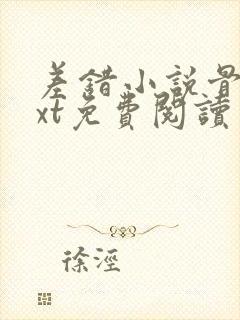 差錯小說骨
xt免費閱讀
徐涇